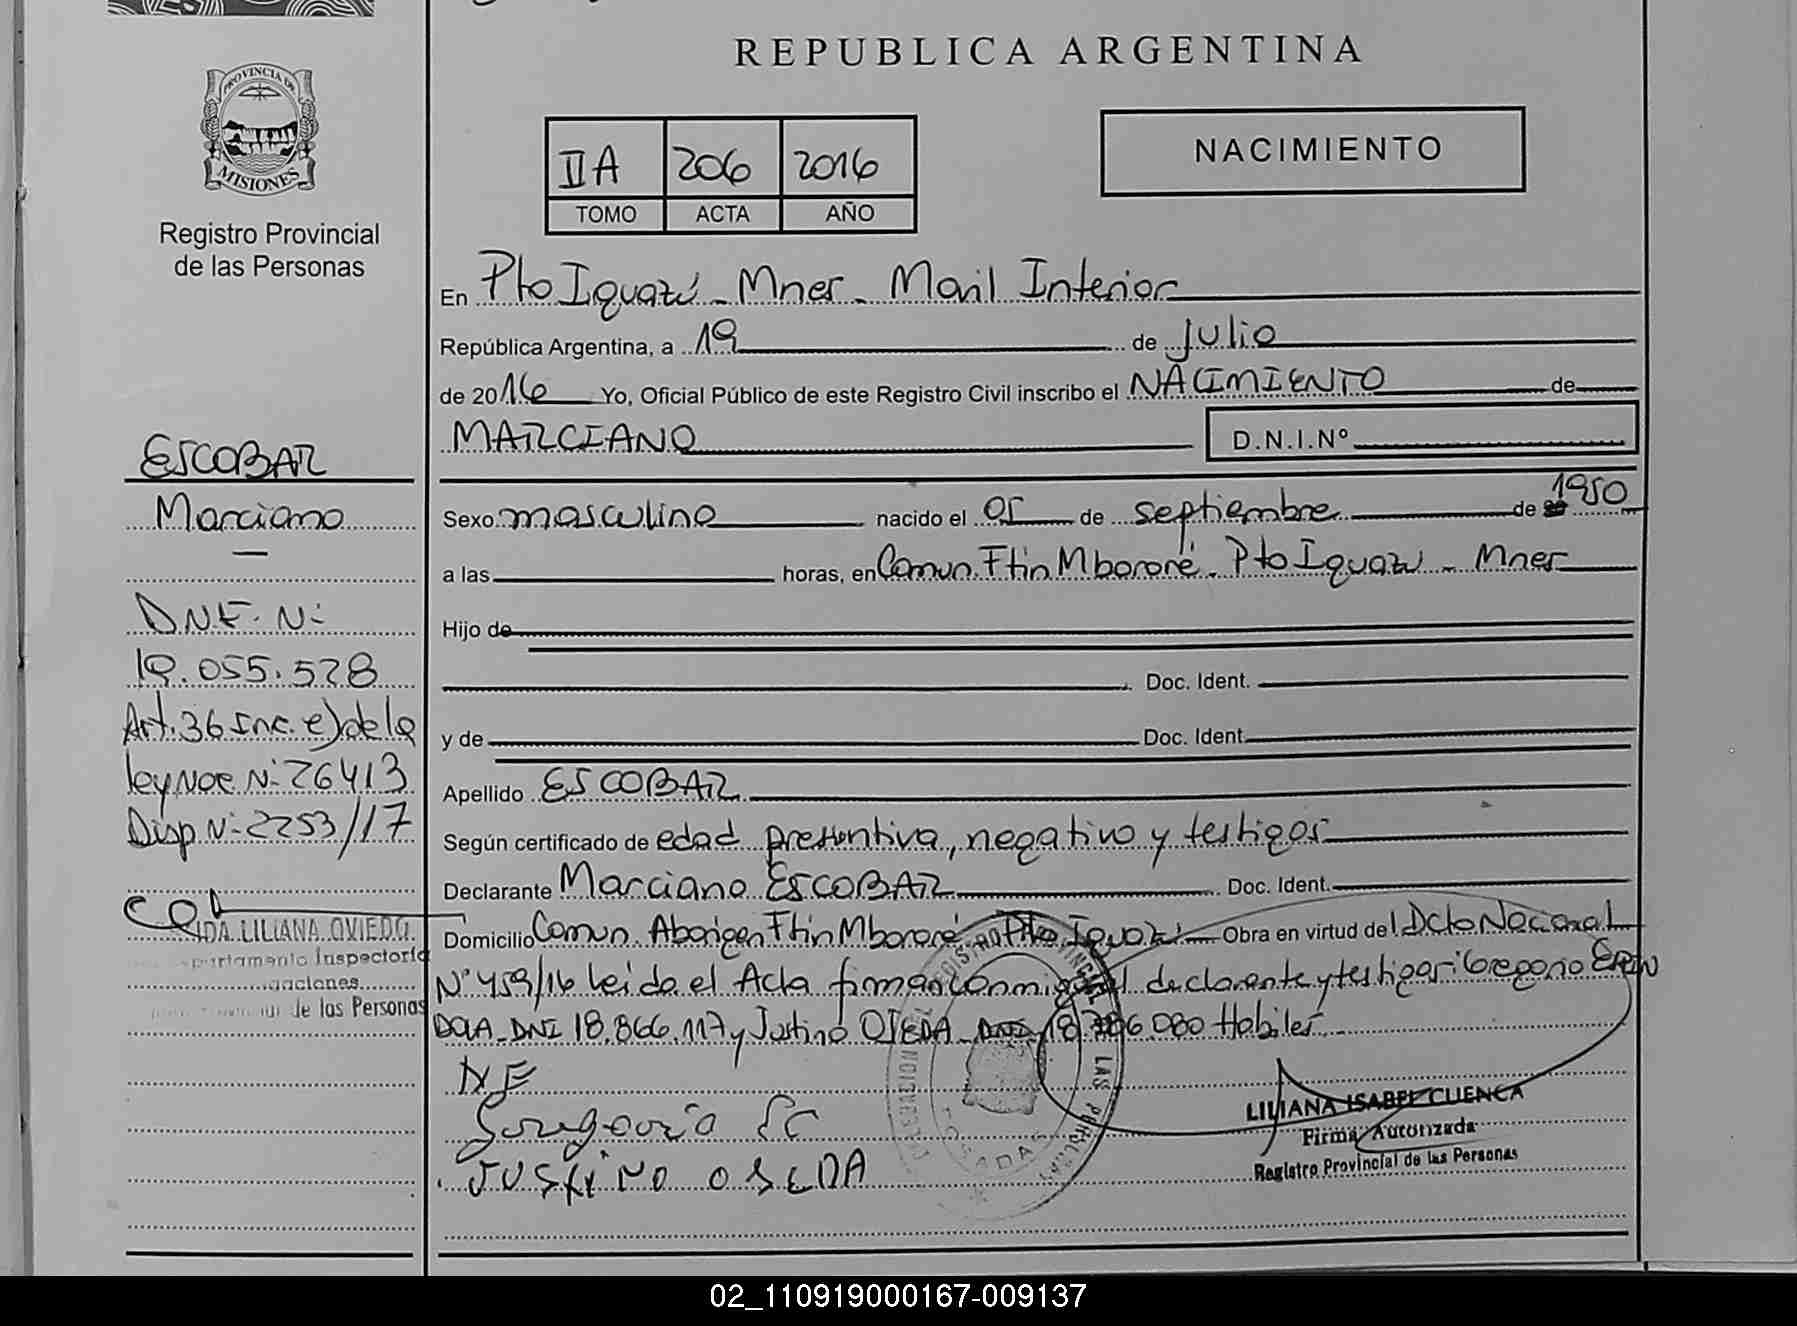 REPUBLICA ARGENTINA
PROVINCIA DE
MISIONES
Registro Provincial
de las Personas
IIA 206 2016
TOMO ACTA AÑO
NACIMIENTO
En Pto Iguazú - Mnes - Movil Interior
República Argentina, a 19 de Julio
de 2016 Yo, Oficial Público de este Registro Civil inscribo el NACIMIENTO de
MARCIANO D.N.I.Nº
Sexo masculino nacido el 05 de septiembre de 1950
a las horas, en Comun. Ftin Mbororé - Pto Iguazu - Mnes
Hijo de
Doc. Ident.
y de Doc. Ident.
Apellido ESCOBAR
Según certificado de edad presuntiva, negativo y testigos
Declarante Marciano ESCOBAR Doc. Ident.
Domicilio Comun. Aborigen Ftin Mbororé - Pto Iguazú - Obra en virtud del Dcto Nacional
Nº 459/16 Leida el Acta firman conmigo el declarante y testigos: Gregorio
DNI 18.866.117 y Justino OJEDA - DNI 080 Habiles
Gregorio
JUSTINO OJEDA
LILIANA ISABEL CUENCA
Firma Autorizada
Registro Provincial de las Personas
ESCOBAR
Marciano
—
D.N.I. Nº
19.055.528
Art. 36 Inc. e) de la
ley Nº 26413
Disp. Nº 2253/17
LILIANA OVIEDO
Inspectoria
de las Personas
02_110919000167-009137